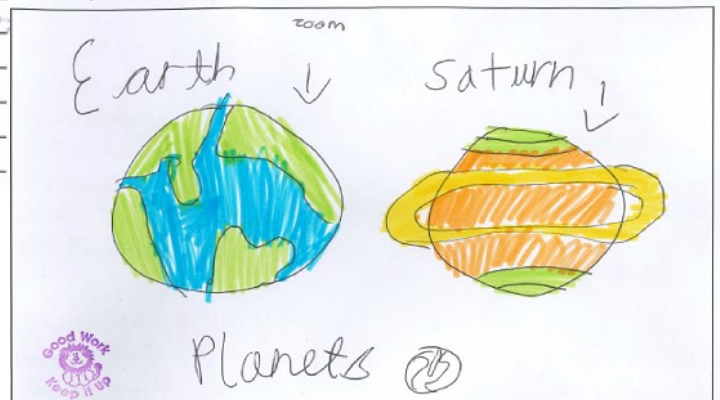 zoom
Earth
Saturn
Planets
Good Work
Keep it up